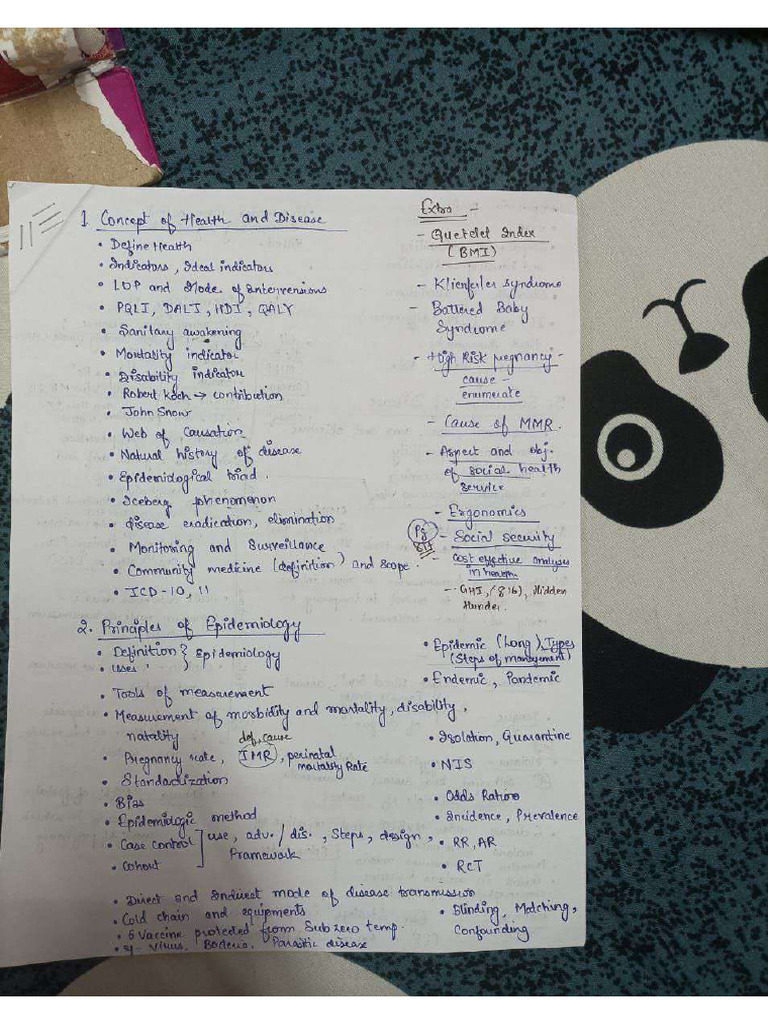 1. Concept of Health and Disease
• Define Health
• Indicators, Ideal indicators
• LOP and Mode of intervensions
• PQLI, DALI, HDI, QALY
• Sanitary awakening
• Mortality indicator
• Disability indicator
• Robert Koch → contribution
• John Snow
• Web of Causation
• Natural history of disease
• Epidemiological triad.
• Iceberg phenomenon
• disease eradication, elimination
• Monitoring and Surveillance
• Community medicine (definition) and scope.
• ICD-10, 11
Extra -
- Quetelet Index
(BMI)
- Klienfelter Syndrome
- Battered Baby
Syndrome
- High Risk pregnancy -
cause -
enumerate
- Cause of MMR.
- Aspect and obj.
of social health
service
- Ergonomics
- Social security
- Cost effective analyses
in health
- GHI, (816), Hidden
Hunder.
2. Principles of Epidemiology
• Definition } Epidemiology
• Uses }
• Tools of measurement
• Measurement of morbidity and mortality, disability,
natality
def, cause
• Pregnancy rate, IMR, perinatal
mortality Rate
• Standardization
• Bias
• Epidemiologic method
• Case control ] use, adv. / dis., Steps, design,
• Cohort Framework
• Direct and Indirect mode of disease transmission
• Cold chain and equipments
• 5 Vaccine protected from Sub zero temp.
Virus, Bacteria, Parasitic disease
• Epidemic (Long), Types
(Steps of management)
• Endemic, Pandemic
• Isolation, Quarantine
• NIS
• Odds Ratio
• Incidence, Prevalence
• RR, AR
• RCT
• Blinding, Matching,
Confounding